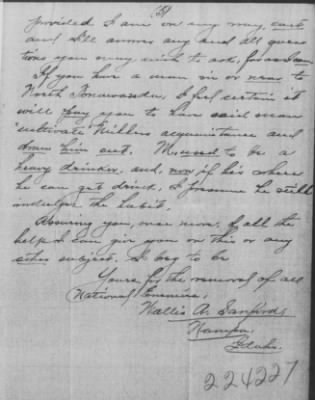 (5)
provided I am on my way, east
and I'll answer any and all ques
tions you may wish to ask, for as I am
If you have a man in or near to
North Tonawanda, I feel certain it
will pay you to have said man
cultivate Millins acquaintance and
draw him out. M. used to be a
heavy drinker, and, now if his where
he can get drink, I presume he still
indulges the habit.
Assuring you, once more, of all the
help I can give you on this or any
other subject. I beg to be
Yours for the removal of all
National Enemies,
Wallis A. Sanford,
Nampa,
Idaho.
224227